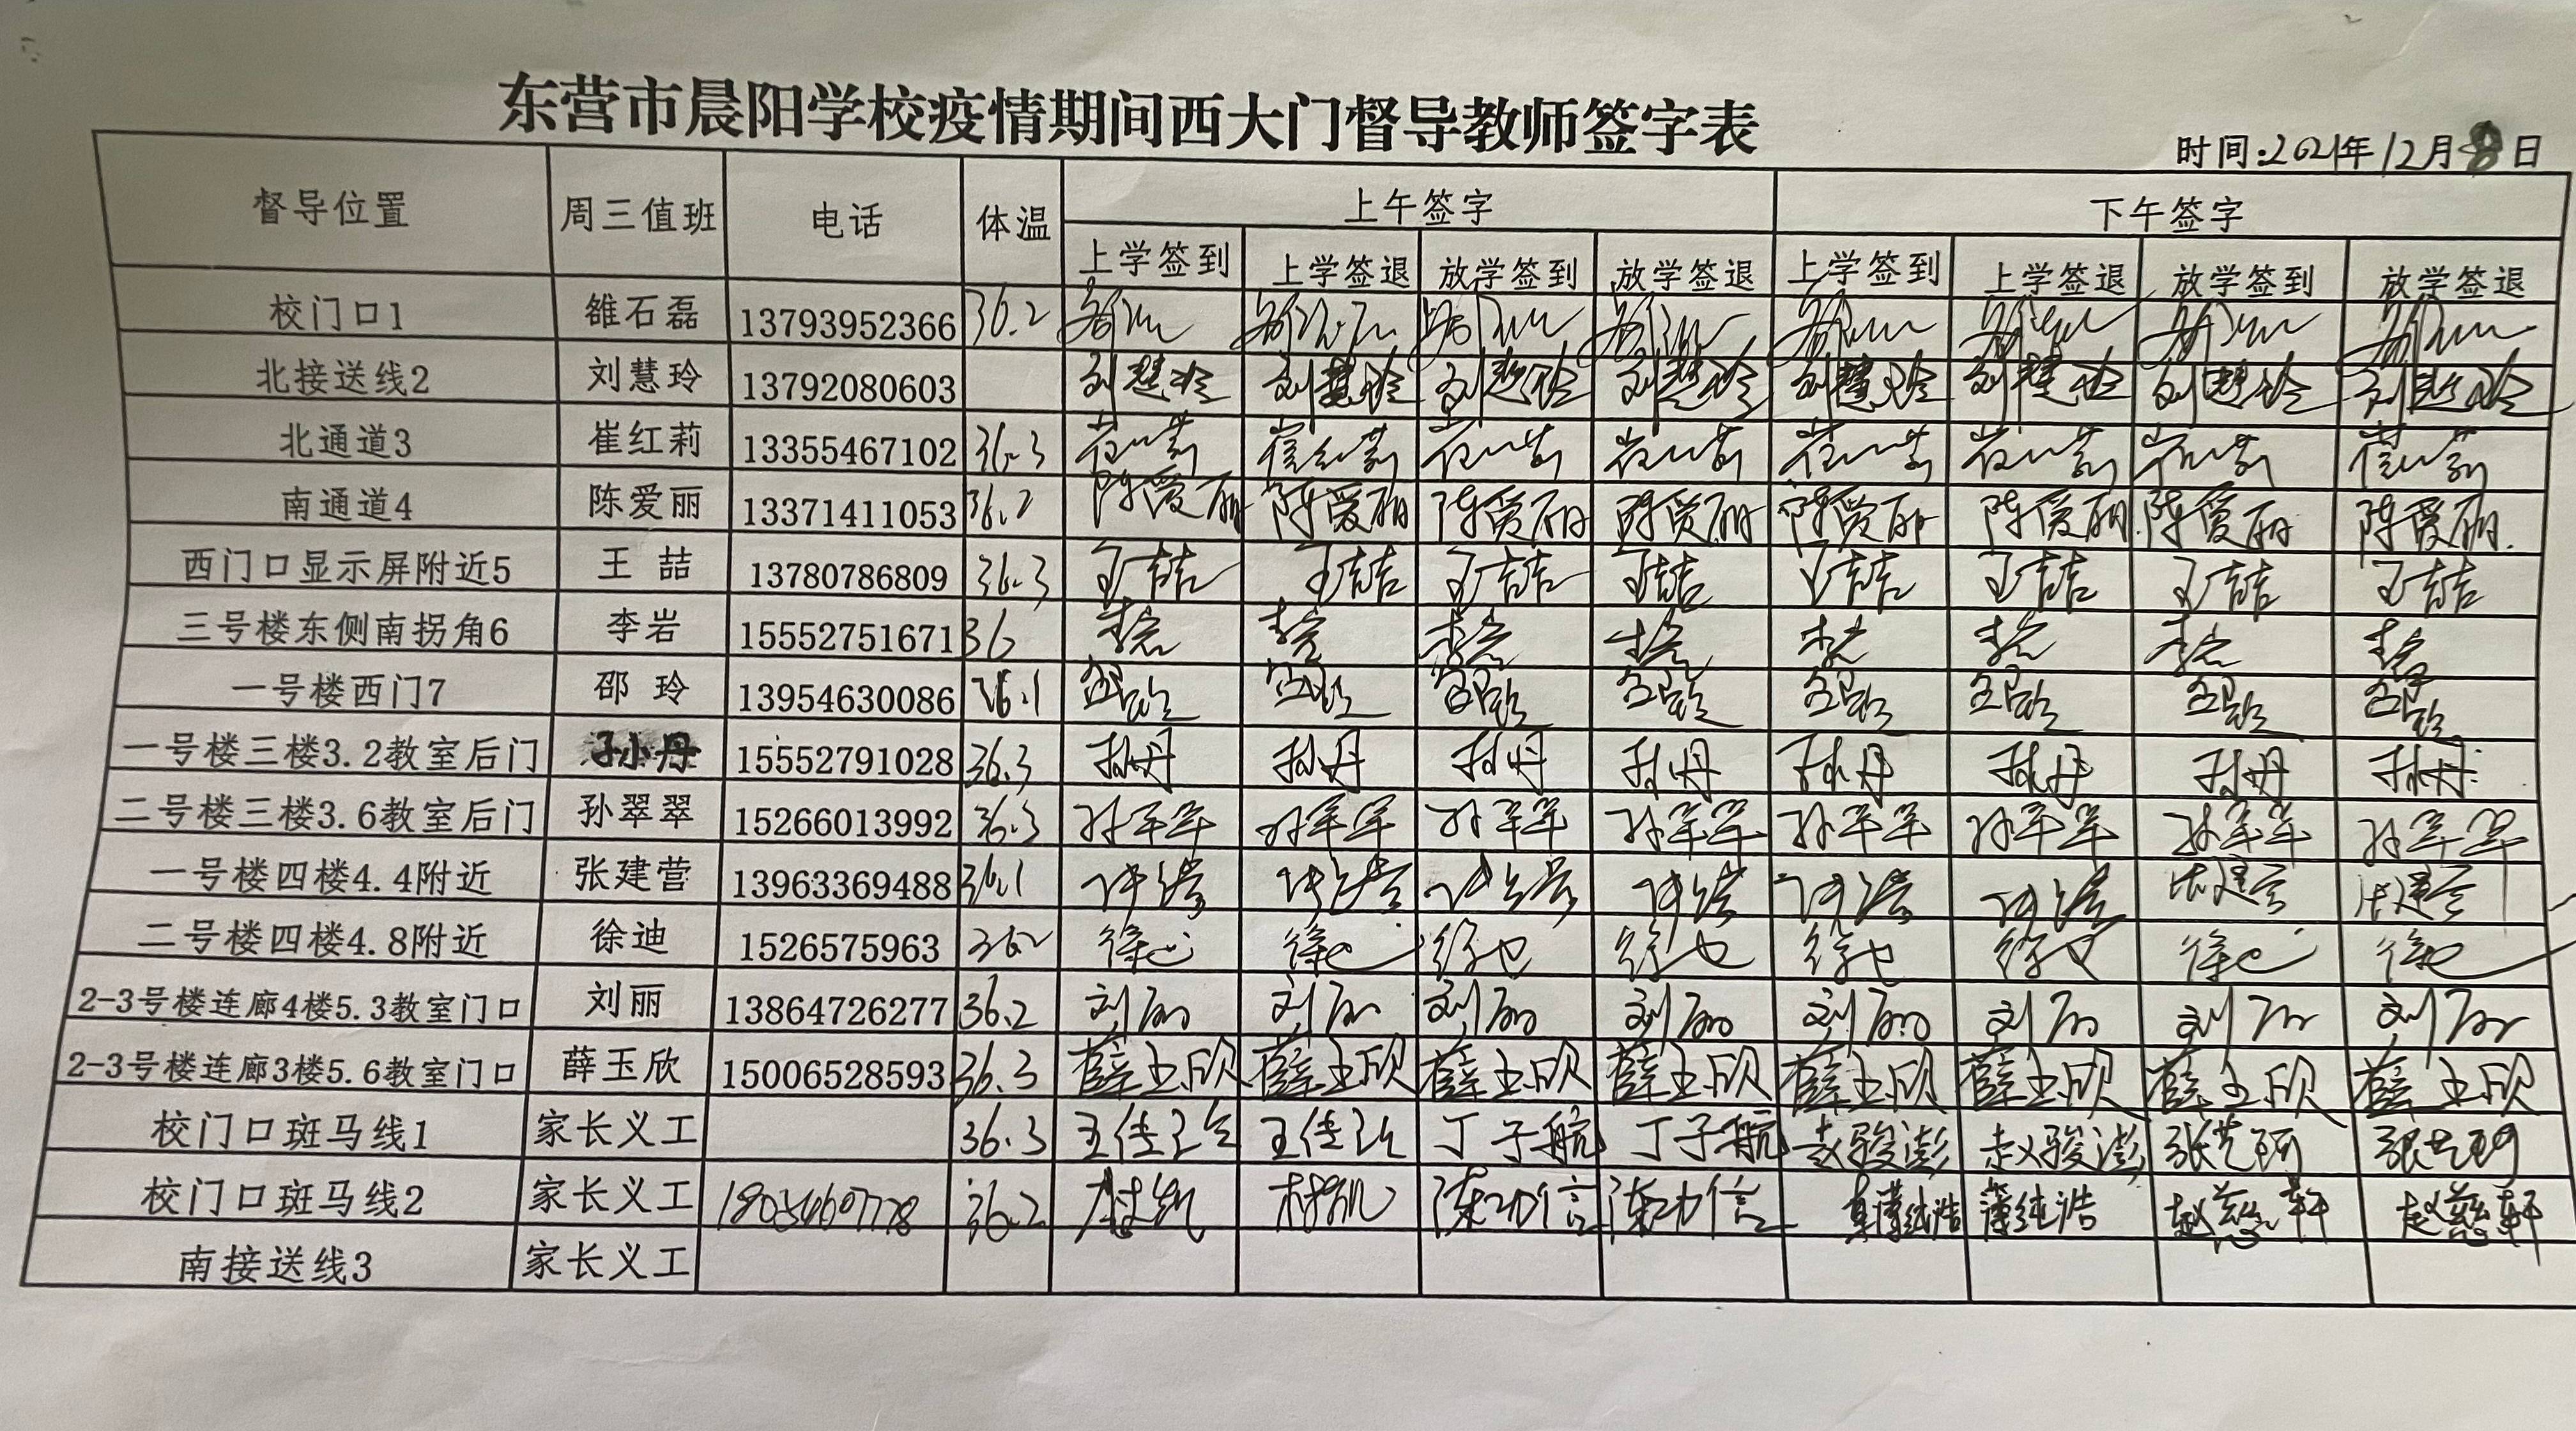 东营市晨阳学校疫情期间西大门督导教师签字表
时间:2021年12月8日
督导位置 周三值班 电话 体温 上午签字 下午签字
上学签到 上学签退 放学签到 放学签退 上学签到 上学签退 放学签到 放学签退
校门口1 雒石磊 13793952366 36.2
北接送线2 刘慧玲 13792080603 刘慧玲 刘慧玲 刘慧玲 刘慧玲 刘慧玲 刘慧玲 刘慧玲 刘慧玲
北通道3 崔红莉 13355467102 36.3 崔红莉 崔红莉 崔红莉 崔红莉 崔红莉 崔红莉 崔红莉 崔红莉
南通道4 陈爱丽 13371411053 36.2 陈爱丽 陈爱丽 陈爱丽 陈爱丽 陈爱丽 陈爱丽 陈爱丽 陈爱丽
西门口显示屏附近5 王喆 13780786809 36.3 王喆 王喆 王喆 王喆 王喆 王喆 王喆 王喆
三号楼东侧南拐角6 李岩 15552751671 36 李岩 李岩 李岩 李岩 李岩 李岩 李岩 李岩
一号楼西门7 邵玲 13954630086 36.1 邵玲 邵玲 邵玲 邵玲 邵玲 邵玲 邵玲 邵玲
一号楼三楼3.2教室后门 孙丹 15552791028 36.3 孙丹 孙丹 孙丹 孙丹 孙丹 孙丹 孙丹 孙丹
二号楼三楼3.6教室后门 孙翠翠 15266013992 36.3 孙翠翠 孙翠翠 孙翠翠 孙翠翠 孙翠翠 孙翠翠 孙翠翠 孙翠翠
一号楼四楼4.4附近 张建营 13963369488 36.1 张建营 张建营 张建营 张建营 张建营 张建营 张建营 张建营
二号楼四楼4.8附近 徐迪 1526575963 36.2 徐迪 徐迪 徐迪 徐迪 徐迪 徐迪 徐迪 徐迪
2-3号楼连廊4楼5.3教室门口 刘丽 13864726277 36.2 刘丽 刘丽 刘丽 刘丽 刘丽 刘丽 刘丽 刘丽
2-3号楼连廊3楼5.6教室门口 薛玉欣 15006528593 36.3 薛玉欣 薛玉欣 薛玉欣 薛玉欣 薛玉欣 薛玉欣 薛玉欣 薛玉欣
校门口斑马线1 家长义工 36.3 丁子航 丁子航 赵骏澎 赵骏澎
校门口斑马线2 家长义工 36.2 陈功信 陈功信 薄纯浩 薄纯浩 赵慈轩 赵慈轩
南接送线3 家长义工